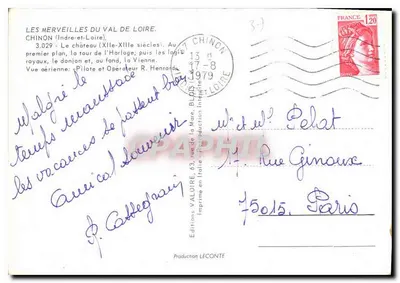 LES MERVEILLES DU VAL DE LOIRE.
CHINON (Indre-et-Loire),
3.029 - Le château (XIIe-XIIIe siècles). Au
premier plan, la tour de l'Horloge; puis les logis
royaux, le donjon et, au fond, la Vienne.
Vue aérienne. (Pilote et Opérateur R. Henrard
Malgré le
temps maussade
les vacances se passent bien
Amical souvenir
CHINON
17-8
1979
1,20
Mr et Me Pehat
17 Rue Ginoux
75015. Paris
Editions VALOIRE, 63, rue de la Mare, BLOIS
Imprimé en Italie
Production LECONTE